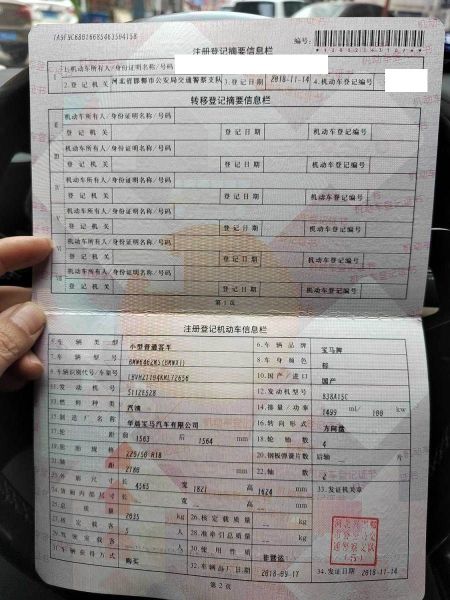 注册登记摘要信息栏
编号:
1.机动车所有人/身份证明名称/号码
2.登记机关 河北省邯郸市公安局交通警察支队 3.登记日期 2018-11-14 4.机动车登记编号
转移登记摘要信息栏
机动车所有人/身份证明名称/号码
登记机关 登记日期 机动车登记编号
机动车所有人/身份证明名称/号码
登记机关 登记日期 机动车登记编号
机动车所有人/身份证明名称/号码
登记机关 登记日期 机动车登记编号
机动车所有人/身份证明名称/号码
登记机关 登记日期 机动车登记编号
机动车所有人/身份证明名称/号码
登记机关 登记日期 机动车登记编号
机动车所有人/身份证明名称/号码
登记机关 登记日期 机动车登记编号
第1页
注册登记机动车信息栏
5.车辆类型 小型普通客车 6.车辆品牌 宝马牌
7.车辆型号 BMW6462MS(BMWX1) 8.车身颜色 棕
9.车辆识别代号/车架号 10.国产/进口 国产
11.发动机号 12.发动机型号 B38A15C
13.燃料种类 汽油 14.排量/功率 1499 ml/ 100 kw
15.制造厂名称 华晨宝马汽车有限公司 16.转向形式 方向盘
17.轮距 前 1563 后 1564 mm 18.轮胎数 4
19.轮胎规格 225/50 R18 20.钢板弹簧片数 后轴 片
21.轴距 2780 mm 22.轴数 2
23.外廓尺寸 长 4565 宽 1821 高 1624 mm 33.发证机关章
24.货厢内部尺寸 长 宽 高 mm
25.总质量 2035 kg 26.核定载质量 kg
27.核定载客 5 人 28.准牵引总质量 kg
29.驾驶室载客 人 30.使用性质 非营运
31.车辆获得方式 购买 32.车辆出厂日期 2018-09-17 34.发证日期 2018-11-14
第2页